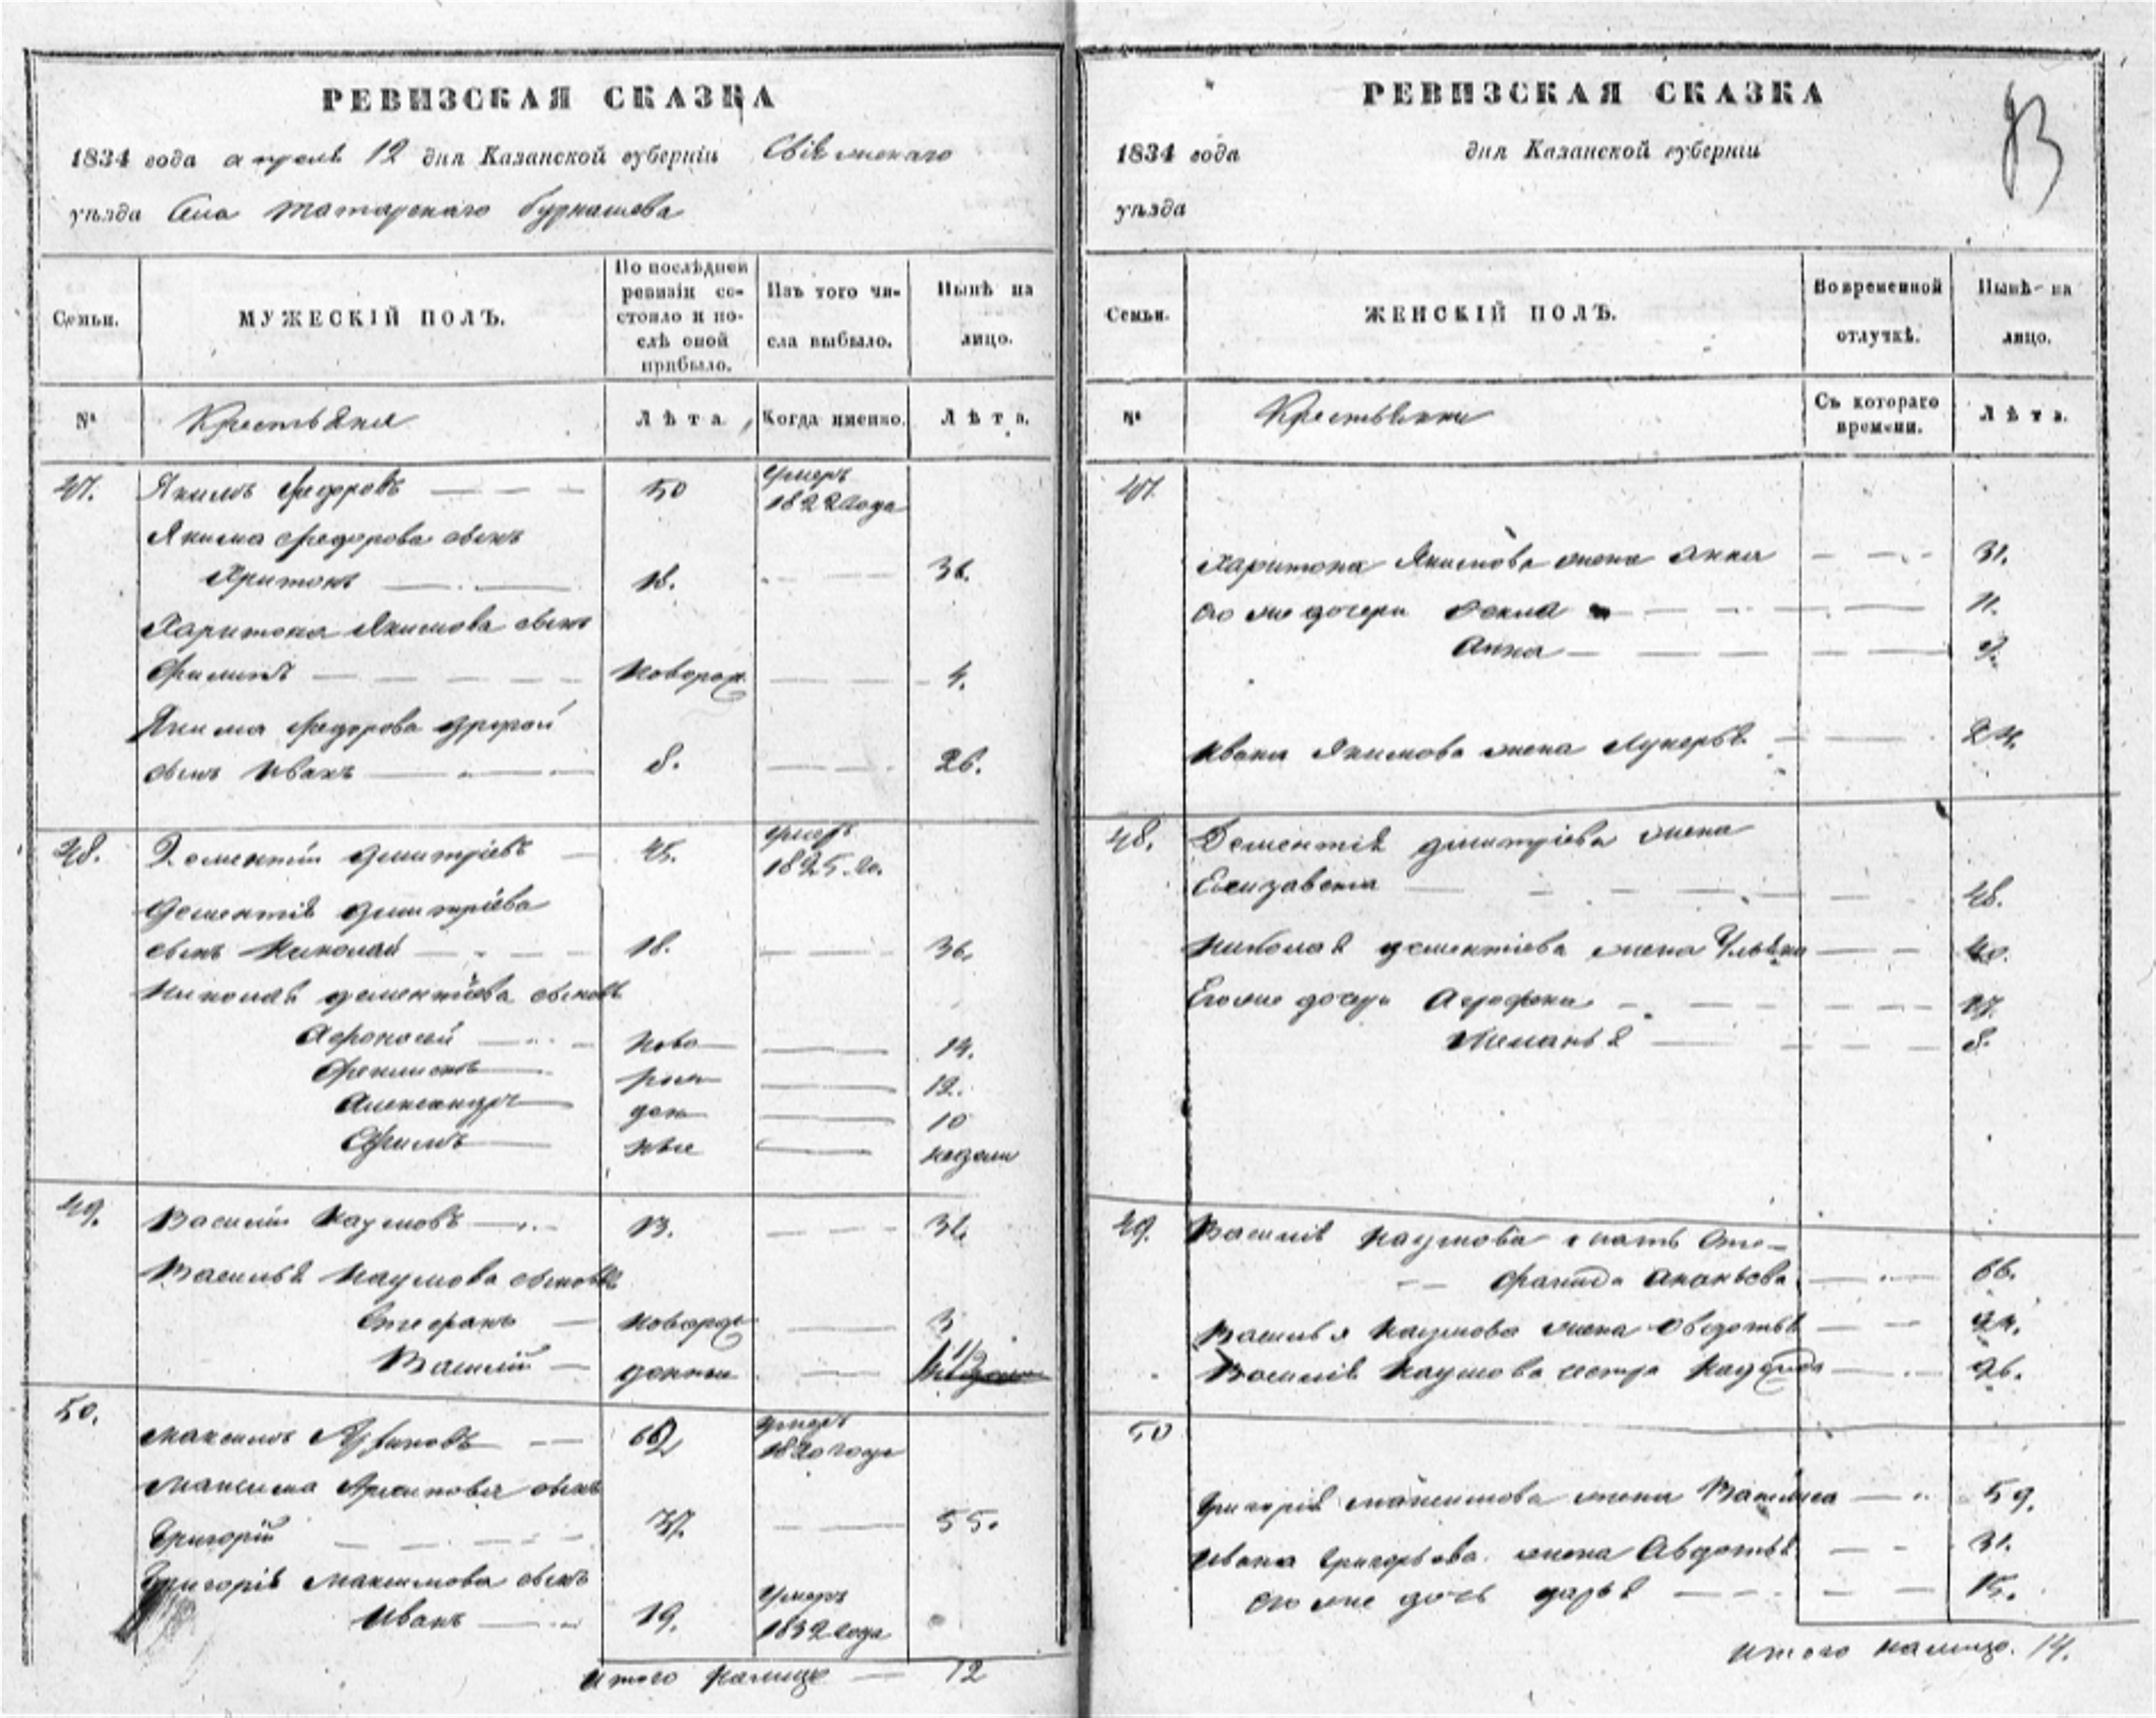 РЕВИЗСКАЯ СКАЗКА
1834 года апреля 12 дня Казанской губерніи Свіяжскаго
уѣзда Села Татарскаго Бурнашева
Семьи. МУЖЕСКІЙ ПОЛЪ. По послѣдней ревизіи состояло и послѣ оной прибыло. Изъ того числа выбыло. Нынѣ на лицо.
№ Крестьяня Лѣта. Когда именно. Лѣта.
47. Якимъ Федоровъ — — — 50 умеръ 1822 года
Якима Федорова сынъ
Харитонъ — — 18. — — 36.
Харитона Якимова сынъ
Филипъ — — — — новорож. — — 4.
Якима Федорова другой
сынъ Иванъ — — — 8. — — 26.
48. Дементій Дмитріевъ — 45. умеръ 1825 го.
Дементія Дмитріева
сынъ Николай — — — 18. — — 36.
Николая Дементіева сыновья
Афонасей — — ново — 14.
Феклистъ — рож — 12.
Александръ — ден — 10
Ефимъ — ные — недели
49. Василій Наумовъ — 13. — — — 31.
Василья Наумова сыновья
Стефанъ — новорож — 3
Василій — денныи — 1/2
50. Максимъ Архиповъ — — 62 умеръ 1820 года
Максима Архипова сынъ
Григорій — — — — 37. — — 55.
Григорія Максимова сынъ
Иванъ — — 19. умеръ 1832 года
Итого налицо — 12
РЕВИЗСКАЯ СКАЗКА
1834 года дня Казанской губерніи
уѣзда
93
Семьи. ЖЕНСКІЙ ПОЛЪ. Во временной отлучкѣ. Нынѣ на лицо.
№ Крестьянки Съ котораго времени. Лѣта.
47
Харитона Якимова жена Анна — — — 31.
Его же дочери Фекла — — — — 11.
Анна — — — — 9.
Ивана Якимова жена Лукерья — — — 24.
48. Дементія Дмитріева жена
Елизавета — — — — 48.
Николая Дементіева жена Ульяна — — 40.
Его же дочери Агрофена — — — — 17.
Меланья — — — — 8.
49. Василія Наумова мать Сте-
фанида Ананьева — — 66.
Василья Наумова жена Овдотья — — 24.
Василія Наумова сестра — — 26.
50
Григорія Максимова жена Василиса — — 59.
Ивана Григорьева жена Авдотья — — 31.
Его же дочь Дарья — — — — 15.
Итого налицо. 14.